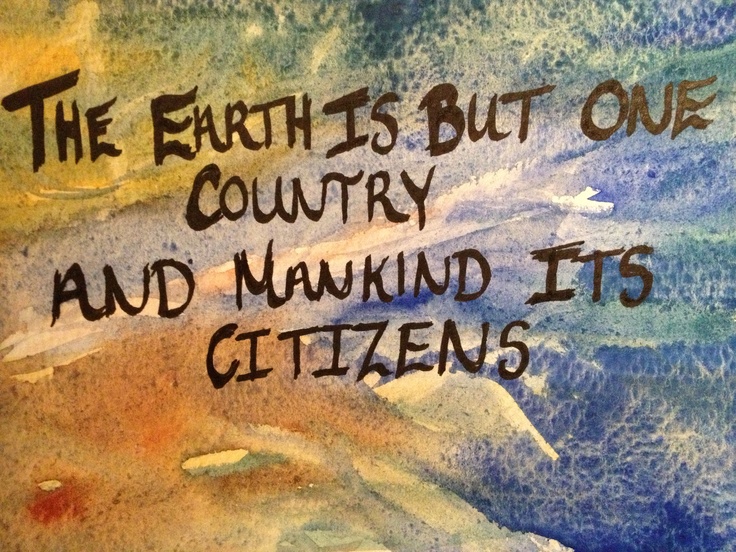 THE EARTH IS BUT ONE
COUNTRY
AND MANKIND ITS
CITIZENS